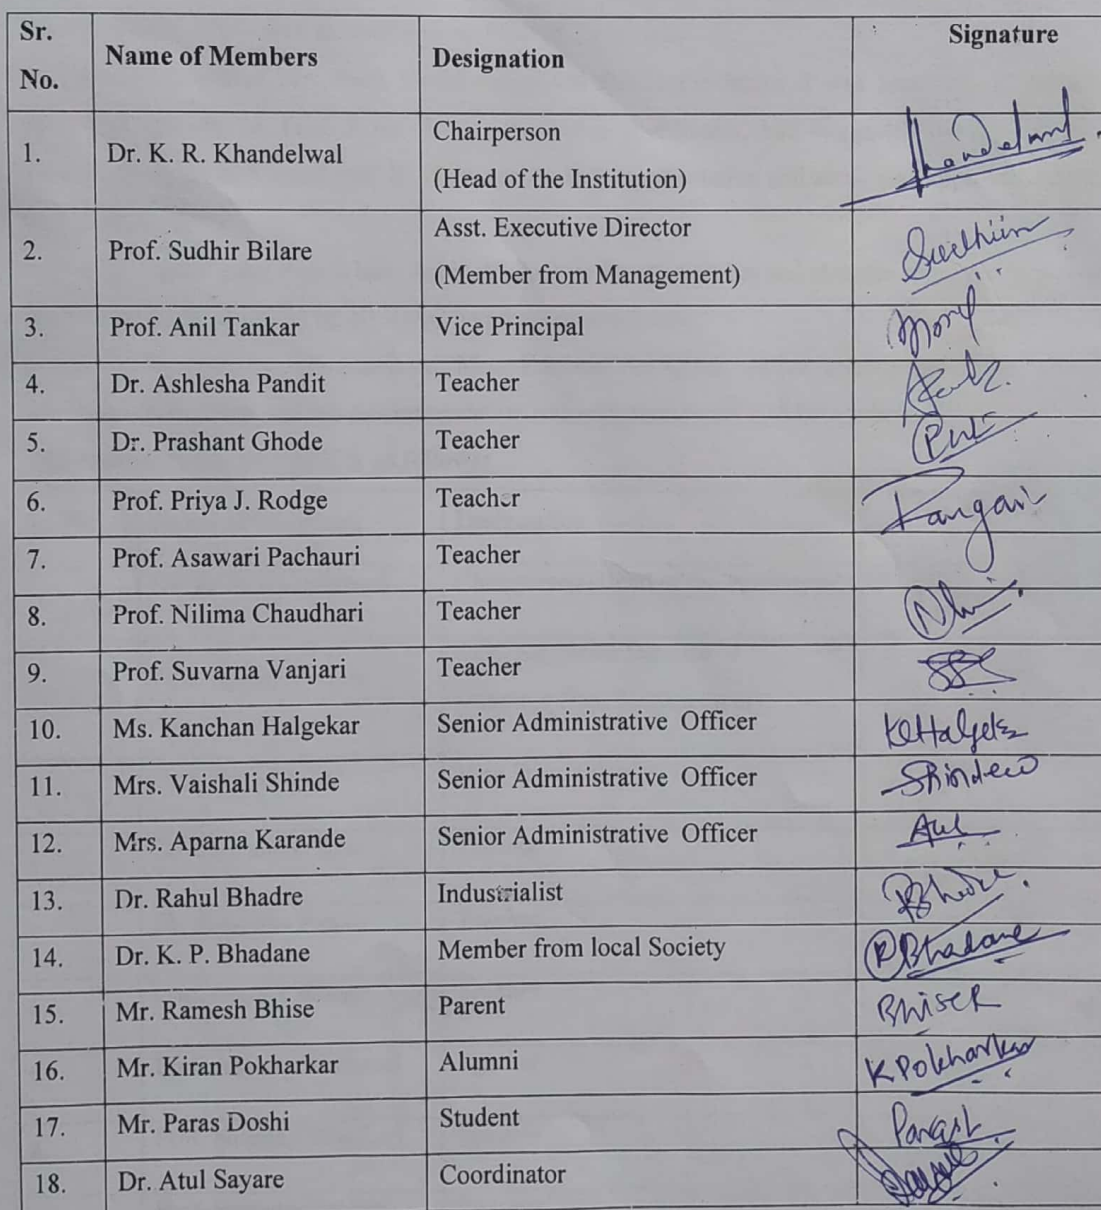 Sr. No. Name of Members Designation Signature
1. Dr. K. R. Khandelwal Chairperson (Head of the Institution)
2. Prof. Sudhir Bilare Asst. Executive Director (Member from Management)
3. Prof. Anil Tankar Vice Principal
4. Dr. Ashlesha Pandit Teacher
5. Dr. Prashant Ghode Teacher
6. Prof. Priya J. Rodge Teacher Rangari
7. Prof. Asawari Pachauri Teacher
8. Prof. Nilima Chaudhari Teacher
9. Prof. Suvarna Vanjari Teacher
10. Ms. Kanchan Halgekar Senior Administrative Officer
11. Mrs. Vaishali Shinde Senior Administrative Officer
12. Mrs. Aparna Karande Senior Administrative Officer
13. Dr. Rahul Bhadre Industrialist
14. Dr. K. P. Bhadane Member from local Society Bhadane
15. Mr. Ramesh Bhise Parent BhiseR
16. Mr. Kiran Pokharkar Alumni K Pokharkar
17. Mr. Paras Doshi Student
18. Dr. Atul Sayare Coordinator